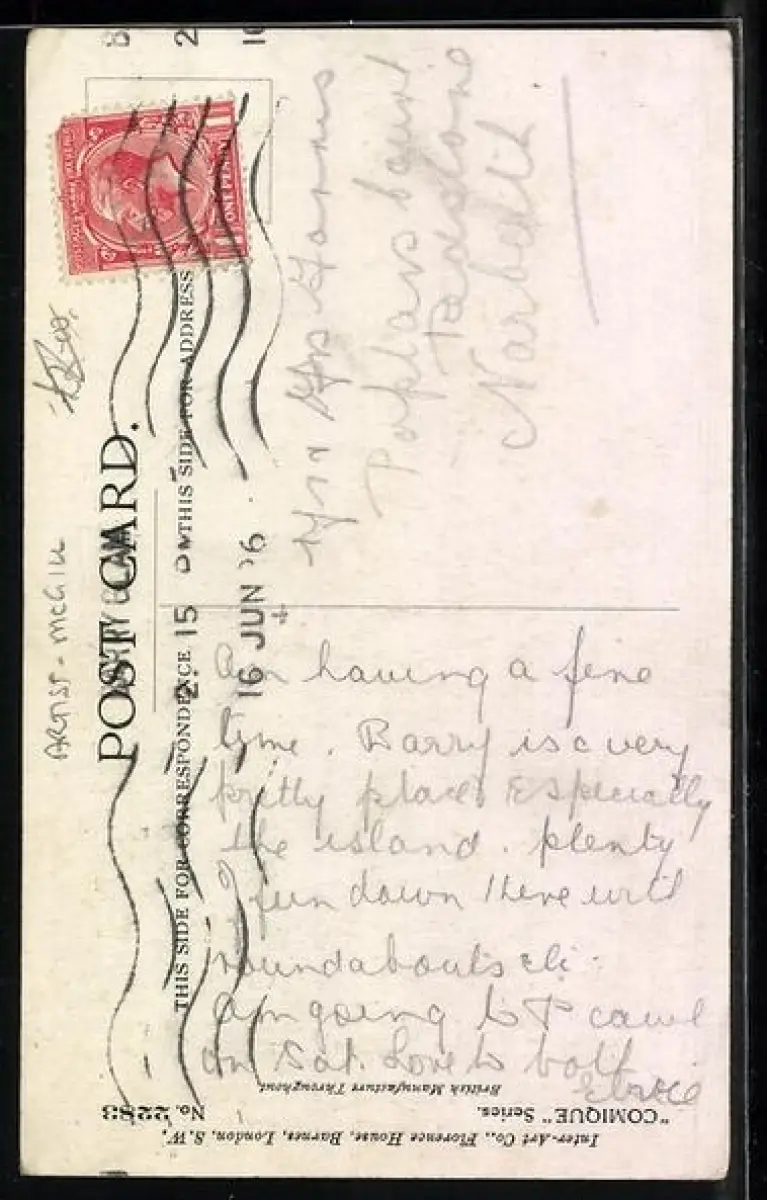 POST CARD.
THIS SIDE FOR CORRESPONDENCE
THIS SIDE FOR ADDRESS
ONE PENNY
2. 15
16 JUN
ARTIST - MCGILL
Am having a fine
time. Barry is a very
pretty place Especially
the island. plenty
of fun down there with
roundabouts etc.
Am going to P cawl
on Sat. Love to both
Poplars Court
Narberth
British Manufacture Throughout
"COMIQUE" Series.
No. 2283
Inter-Art Co., Florence House, Barnes, London, S.W.